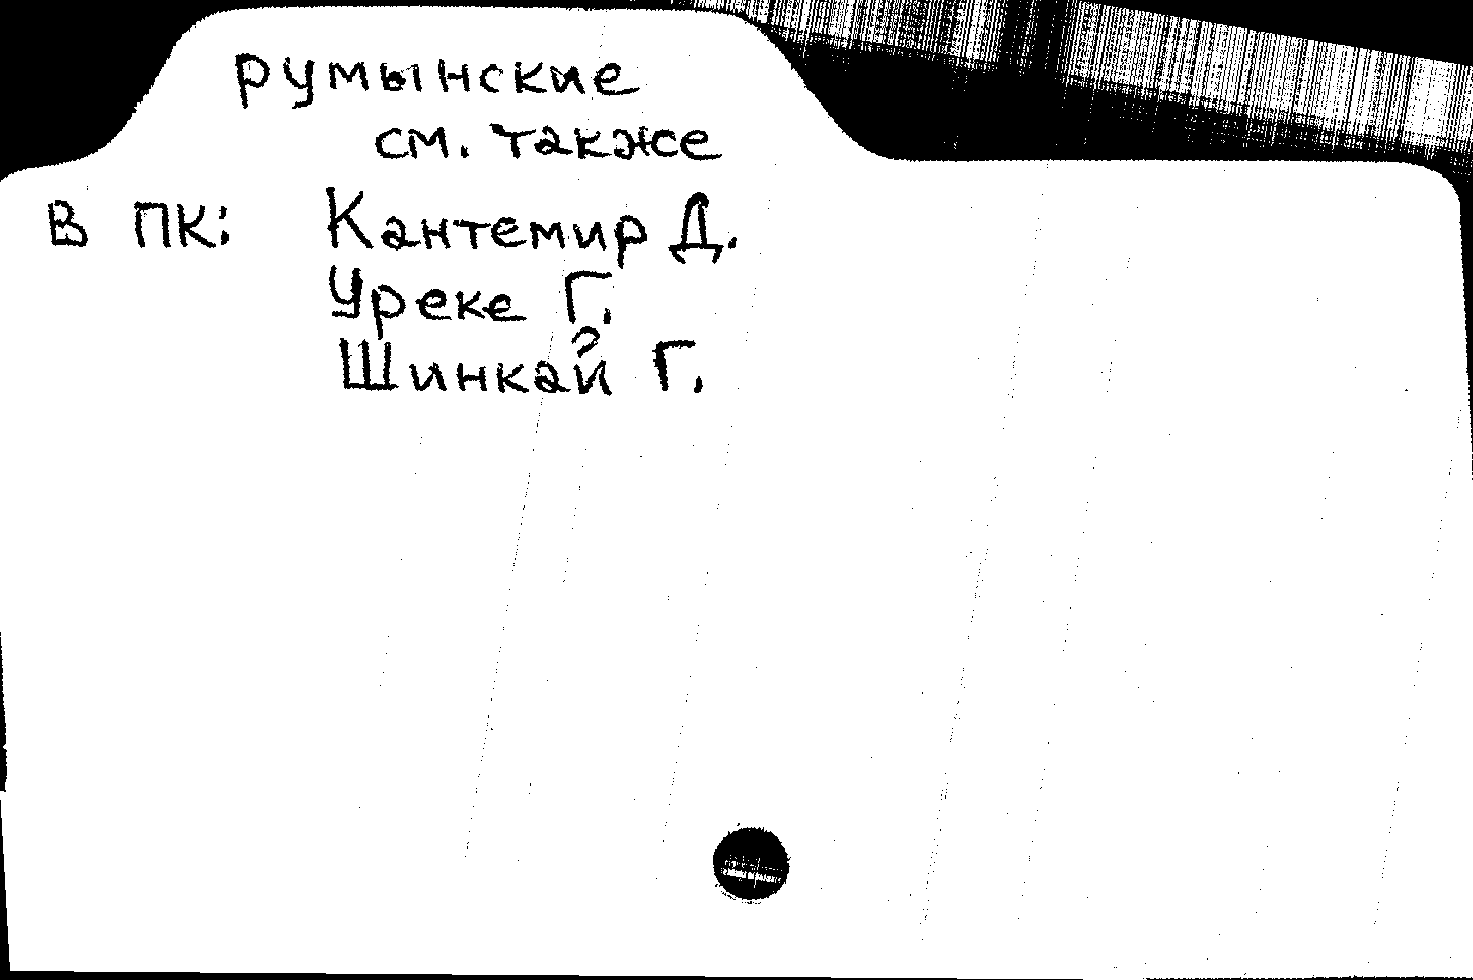 румынские
см. также
в ПК: Кантемир Д.
Уреке Г.
Шинкай Г.